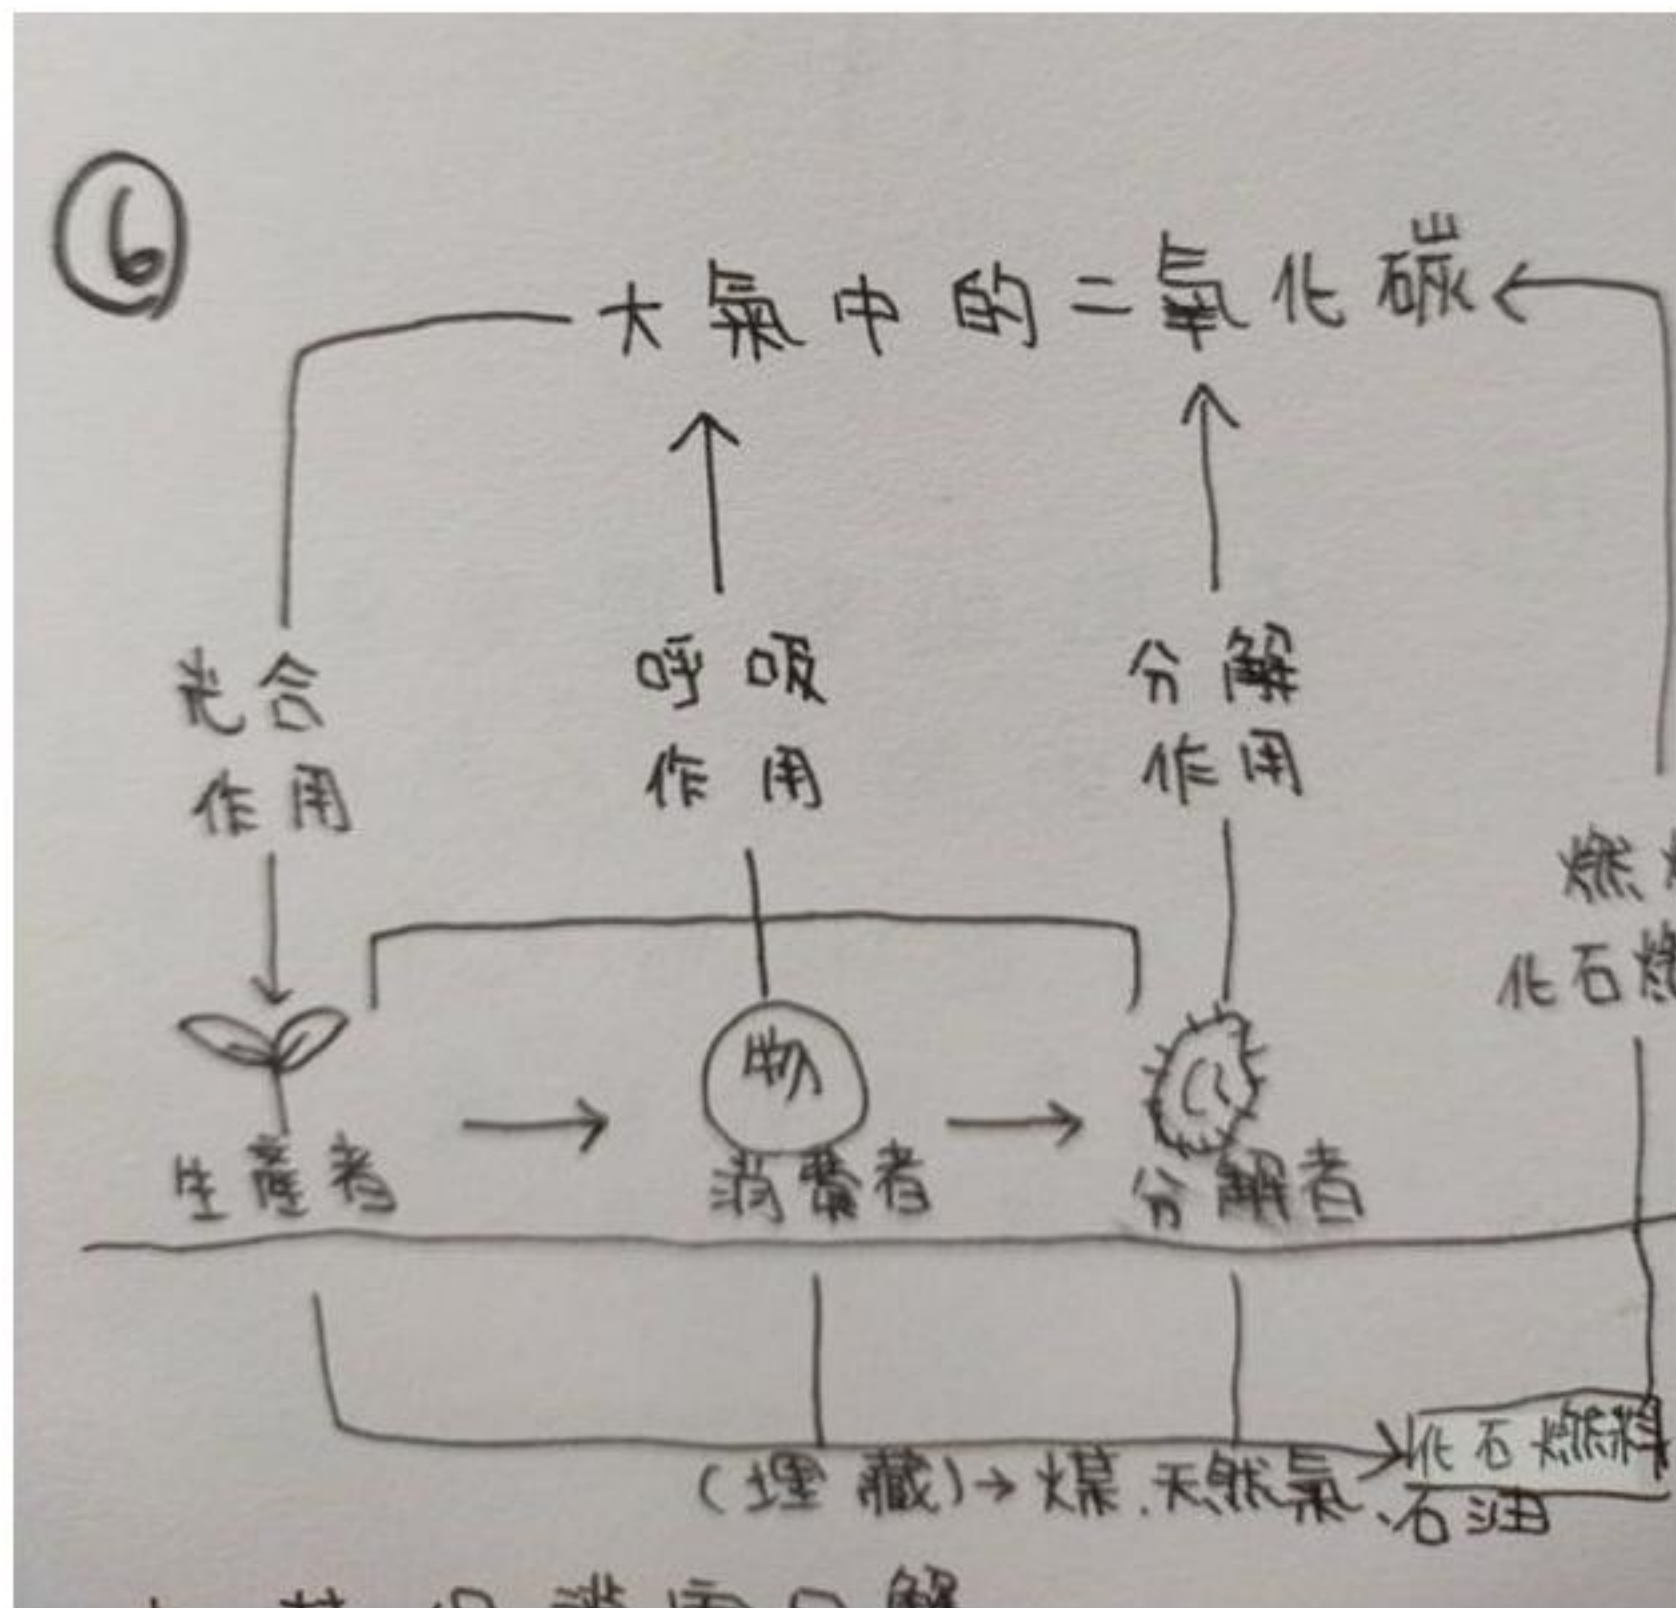 6
大氣中的二氧化碳
光合
作用
呼吸
作用
分解
作用
燃
化石燃
物
生產者
消費者
分解者
化石燃料
(埋藏)→煤、天然氣、石油